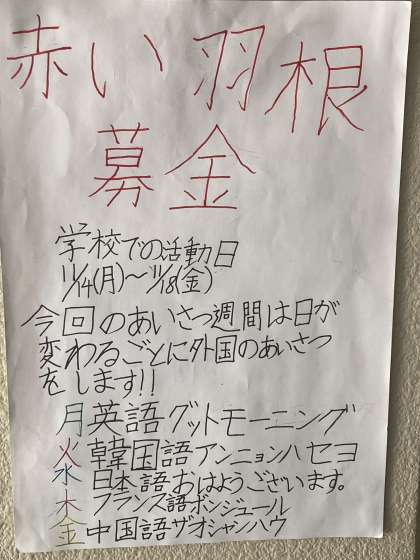 赤い羽根
募金
学校での活動日
11/14(月)〜11/18(金)
今回のあいさつ週間は日が
変わるごとに外国のあいさつ
をします!!
月英語グットモーニング
火韓国語アンニョンハセヨ
水日本語おはようございます。
木フランス語ボンジュール
金中国語ザオシャンハウ